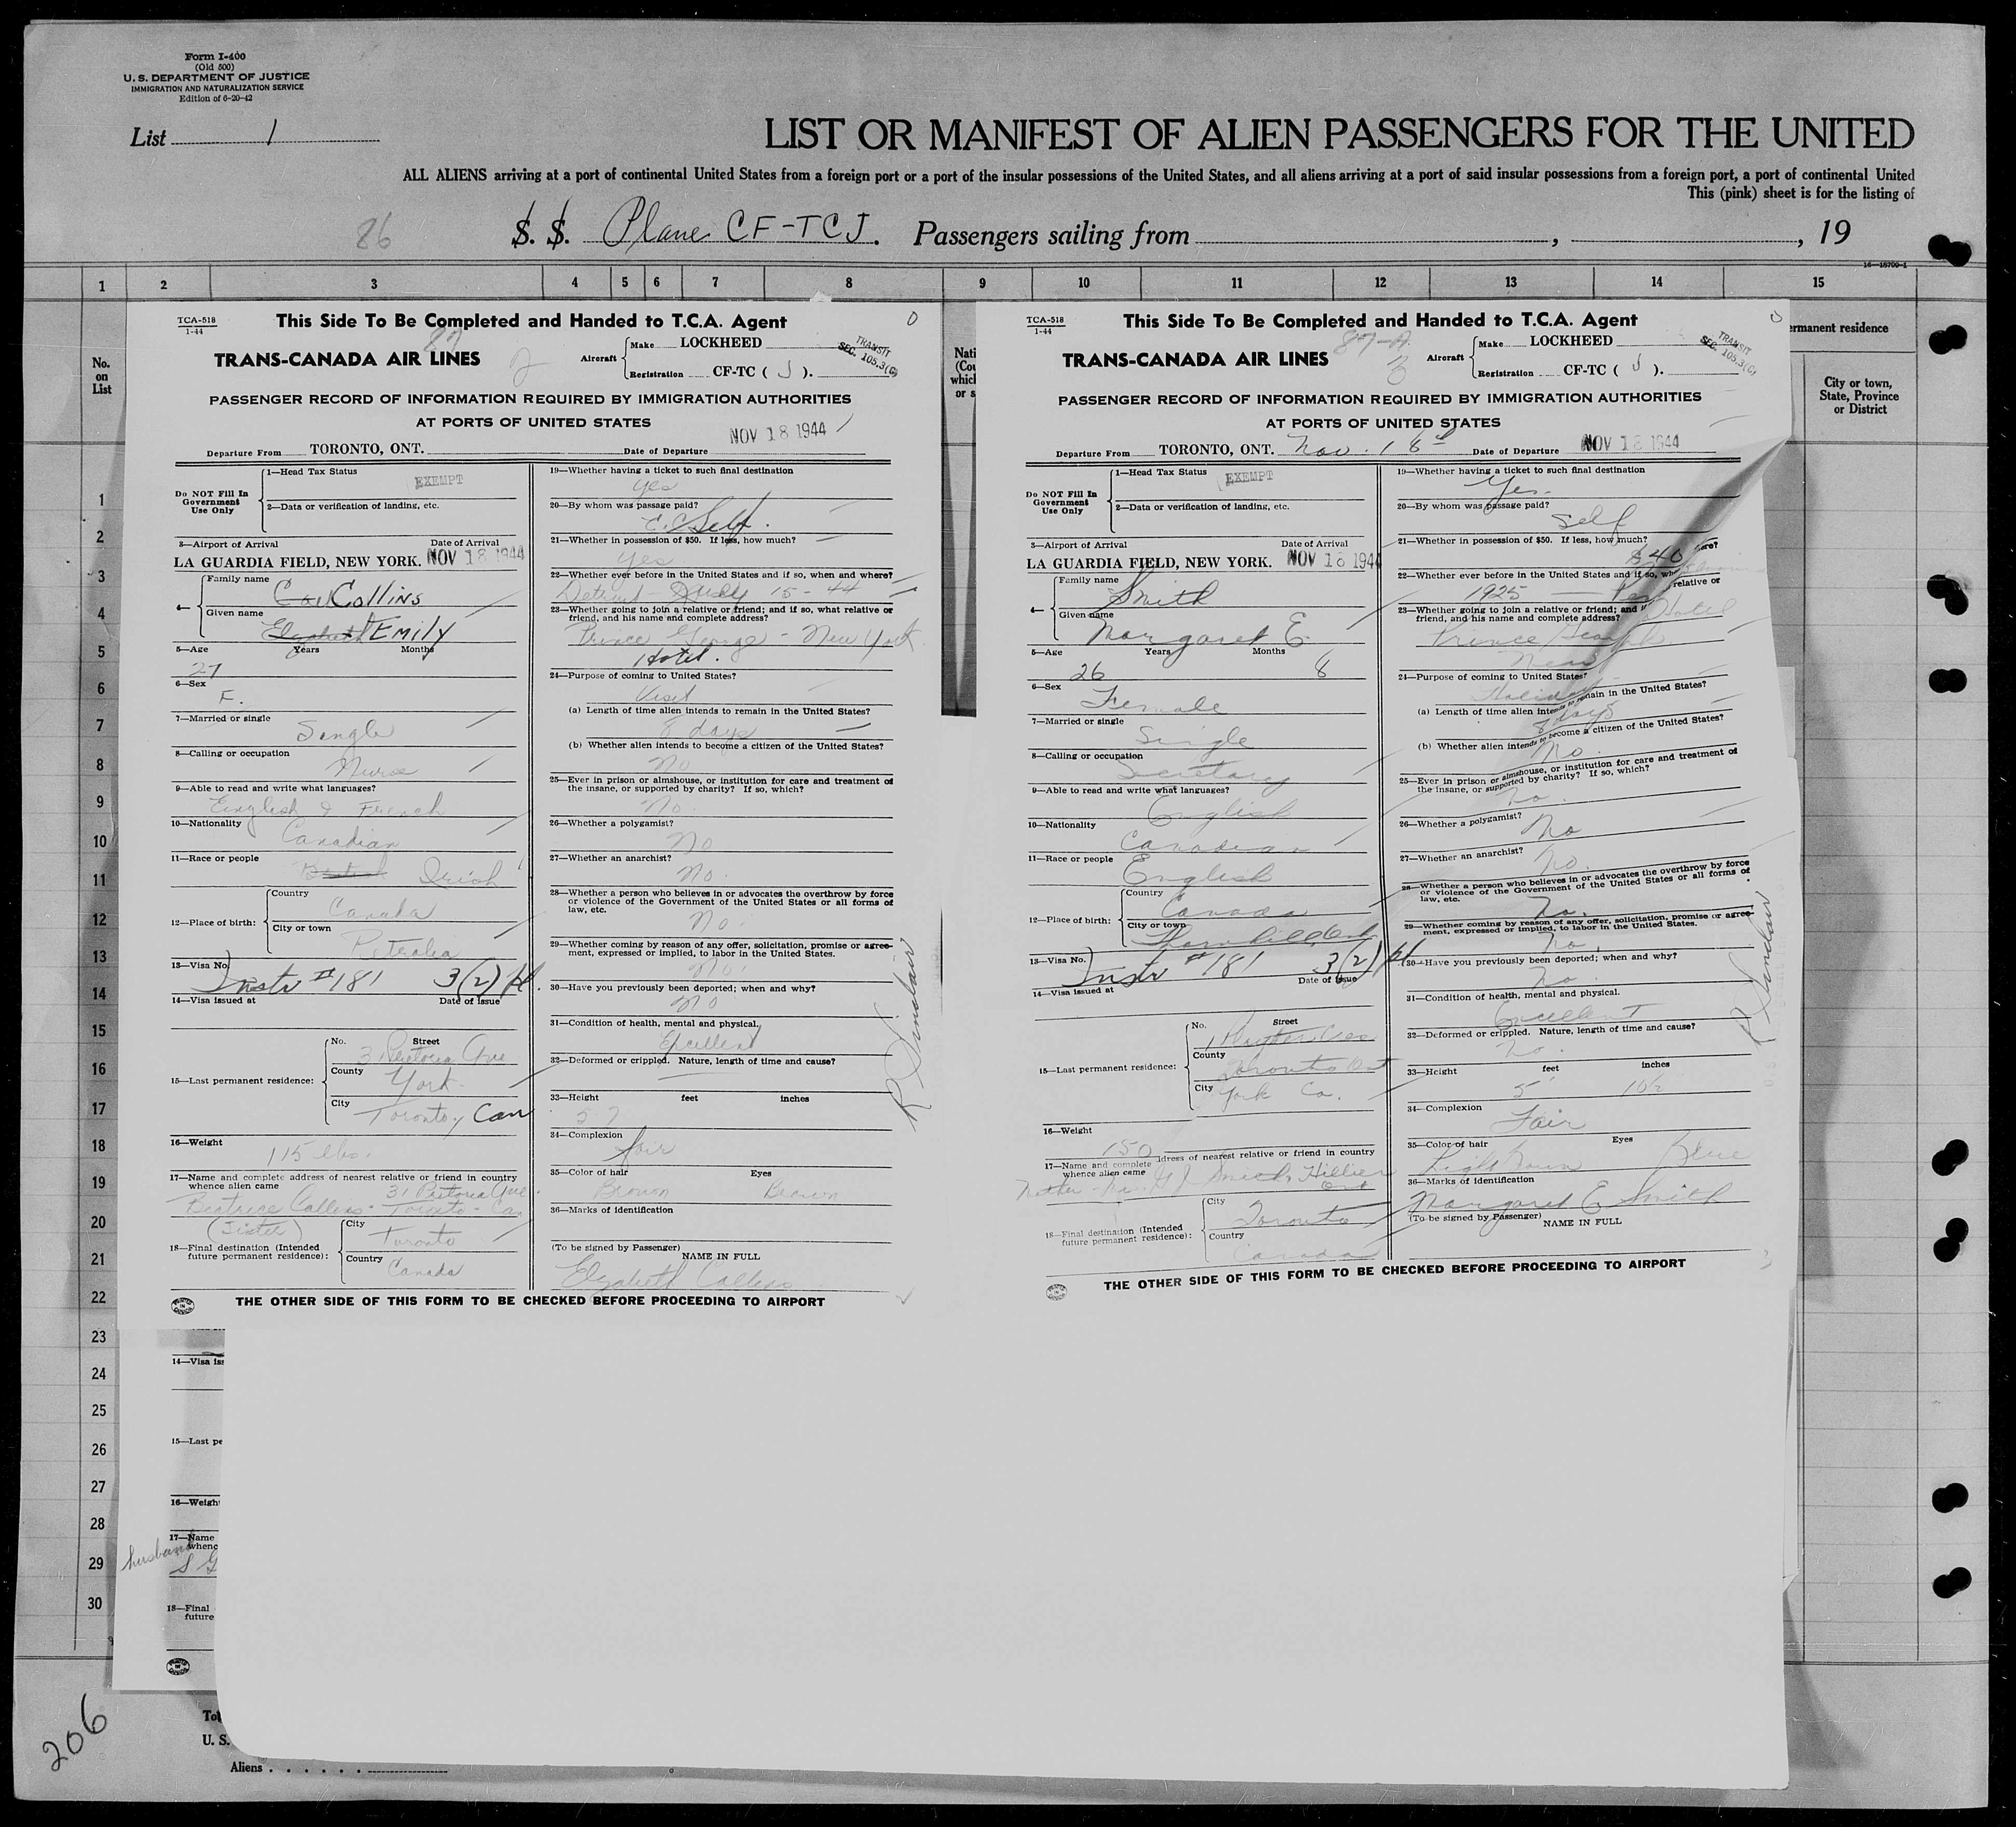 Form I-400
(Old 500)
U. S. DEPARTMENT OF JUSTICE
IMMIGRATION AND NATURALIZATION SERVICE
Edition of 6-20-42
List 1
LIST OR MANIFEST OF ALIEN PASSENGERS FOR THE UNITED
ALL ALIENS arriving at a port of continental United States from a foreign port or a port of the insular possessions of the United States, and all aliens arriving at a port of said insular possessions from a foreign port, a port of continental United
This (pink) sheet is for the listing of
86
S. S. Plane CF-TCJ. Passengers sailing from , , 19
16—18700-1
1 2 3 4 5 6 7 8 9 10 11 12 13 14 15
No.
on
List
TCA-518
1-44
This Side To Be Completed and Handed to T.C.A. Agent
87
2
TRANS-CANADA AIR LINES
Aircraft
Make LOCKHEED
Registration CF-TC ( J ).
TRANSIT
SEC. 105.3(G)
PASSENGER RECORD OF INFORMATION REQUIRED BY IMMIGRATION AUTHORITIES
AT PORTS OF UNITED STATES
NOV 18 1944
Departure From TORONTO, ONT. Date of Departure
Do NOT Fill In
Government
Use Only
1—Head Tax Status
EXEMPT
2—Data or verification of landing, etc.
3—Airport of Arrival Date of Arrival
LA GUARDIA FIELD, NEW YORK. NOV 18 1944
4—
Family name
Collins
Given name
Elizabeth EMILY
5—Age Years Months
27
6—Sex
F.
7—Married or single
Single
8—Calling or occupation
Nurse
9—Able to read and write what languages?
English & French
10—Nationality
Canadian
11—Race or people
British Irish
12—Place of birth:
Country
Canada
City or town
Petrolia
13—Visa No.
Instr #181 3(2) pl.
14—Visa issued at Date of issue
15—Last permanent residence:
No. Street
31 Pretoria Ave
County
York
City
Toronto, Can
16—Weight
115 lbs.
17—Name and complete address of nearest relative or friend in country
whence alien came
31 Pretoria Ave.
Beatrice Collins - Toronto - Can
(Sister)
18—Final destination (Intended
future permanent residence):
City
Toronto
Country
Canada
19—Whether having a ticket to such final destination
Yes
20—By whom was passage paid?
E.C. Self.
21—Whether in possession of $50. If less, how much?
Yes
22—Whether ever before in the United States and if so, when and where?
Detroit - July 15 - 44
23—Whether going to join a relative or friend; and if so, what relative or
friend, and his name and complete address?
Prince George - New York.
Hotel.
24—Purpose of coming to United States?
Visit
(a) Length of time alien intends to remain in the United States?
8 days
(b) Whether alien intends to become a citizen of the United States?
No
25—Ever in prison or almshouse, or institution for care and treatment of
the insane, or supported by charity? If so, which?
No.
26—Whether a polygamist?
No
27—Whether an anarchist?
No.
28—Whether a person who believes in or advocates the overthrow by force
or violence of the Government of the United States or all forms of
law, etc.
No.
29—Whether coming by reason of any offer, solicitation, promise or agree-
ment, expressed or implied, to labor in the United States.
No.
30—Have you previously been deported; when and why?
No
31—Condition of health, mental and physical.
Excellent
32—Deformed or crippled. Nature, length of time and cause?
33—Height feet inches
5 7
34—Complexion
fair
35—Color of hair Eyes
Brown Brown
36—Marks of identification
(To be signed by Passenger)
NAME IN FULL
Elizabeth Collins
THE OTHER SIDE OF THIS FORM TO BE CHECKED BEFORE PROCEEDING TO AIRPORT
R Sinclair
TCA-518
1-44
This Side To Be Completed and Handed to T.C.A. Agent
87-A
3
TRANS-CANADA AIR LINES
Aircraft
Make LOCKHEED
Registration CF-TC ( J ).
TRANSIT
SEC. 105.3(G)
PASSENGER RECORD OF INFORMATION REQUIRED BY IMMIGRATION AUTHORITIES
AT PORTS OF UNITED STATES
Departure From TORONTO, ONT. Nov. 18th Date of Departure NOV 18 1944
Do NOT Fill In
Government
Use Only
1—Head Tax Status
EXEMPT
2—Data or verification of landing, etc.
3—Airport of Arrival Date of Arrival
LA GUARDIA FIELD, NEW YORK. NOV 18 1944
4—
Family name
Smith
Given name
Margaret E.
5—Age Years Months
26 8
6—Sex
Female
7—Married or single
Single
8—Calling or occupation
Secretary
9—Able to read and write what languages?
English
10—Nationality
Canadian
11—Race or people
English
12—Place of birth:
Country
Canada
City or town
Thornhill, Ont.
13—Visa No.
Instr #181 3(2) pl
14—Visa issued at Date of issue
15—Last permanent residence:
No. Street
County
Toronto Ont
City
York Co.
16—Weight
150
17—Name and complete
whence alien came
dress of nearest relative or friend in country
Smith, Hillier
Ont
18—Final destination (Intended
future permanent residence):
City
Toronto
Country
Canada
19—Whether having a ticket to such final destination
Yes.
20—By whom was passage paid?
Self
21—Whether in possession of $50. If less, how much?
$40
22—Whether ever before in the United States and if so, wh
ere?
1925
relative or
23—Whether going to join a relative or friend; and if
friend, and his name and complete address?
Hotel
Prince George
New
24—Purpose of coming to United States?
Holiday
(a) Length of time alien intends to remain in the United States?
8 days
(b) Whether alien intends to become a citizen of the United States?
No.
25—Ever in prison or almshouse, or institution for care and treatment of
the insane, or supported by charity? If so, which?
No.
26—Whether a polygamist?
No
27—Whether an anarchist?
No.
28—Whether a person who believes in or advocates the overthrow by force
or violence of the Government of the United States or all forms of
law, etc.
No.
29—Whether coming by reason of any offer, solicitation, promise or agree-
ment, expressed or implied, to labor in the United States.
No.
30—Have you previously been deported; when and why?
No.
31—Condition of health, mental and physical.
Excellent
32—Deformed or crippled. Nature, length of time and cause?
No.
33—Height feet inches
5' 10½
34—Complexion
Fair
35—Color of hair Eyes
Light Brown Blue
36—Marks of identification
Margaret E. Smith
(To be signed by Passenger)
NAME IN FULL
THE OTHER SIDE OF THIS FORM TO BE CHECKED BEFORE PROCEEDING TO AIRPORT
R Sinclair
Nati
(Cou
which
or s
ermanent residence
City or town,
State, Province
or District
1
2
3
4
5
6
7
8
9
10
11
12
13
14
15
16
17
18
19
20
21
22
23
24
25
26
27
28
29
30
14—Visa iss
15—Last pe
16—Weight
17—Name
whenc
husband
S G
18—Final
future
Tot
U. S.
Aliens
206